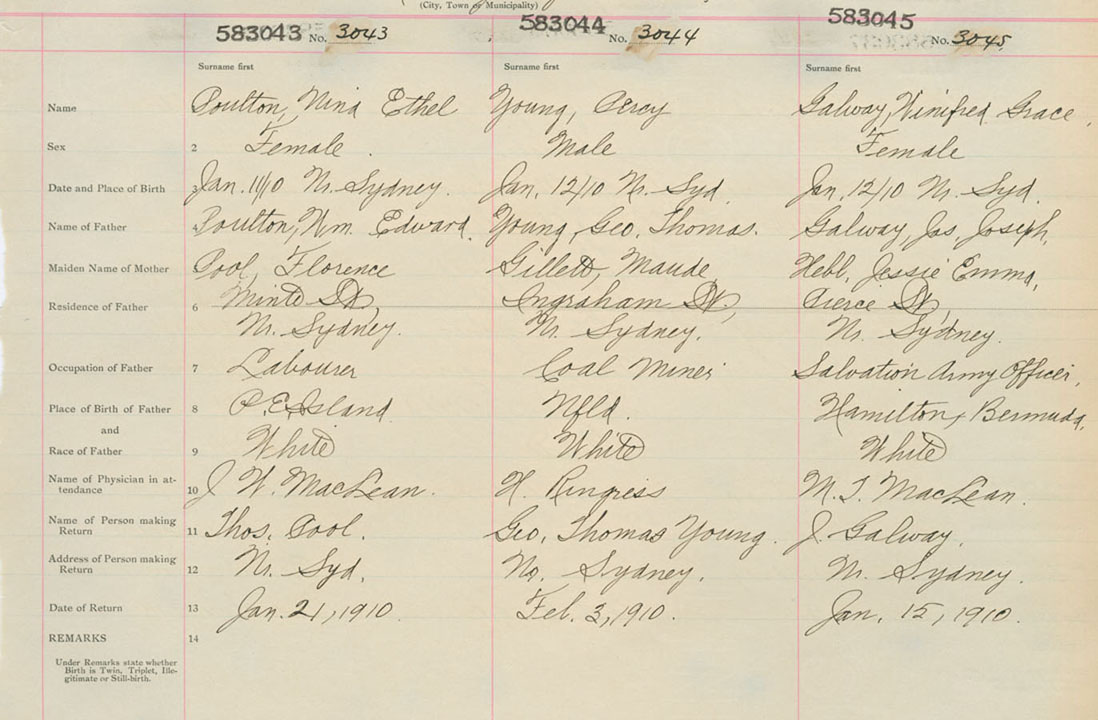 (City, Town or Municipality)
583043 No. 3043
583044 No. 3044
583045 No. 3045
Surname first
Surname first
Surname first
Name Poulton, Nina Ethel Young, Percy Galway, Winifred Grace
Sex 2 Female Male Female
Date and Place of Birth 3 Jan. 11/10 Nr. Sydney. Jan. 12/10 Nr. Syd. Jan. 12/10 Nr. Syd.
Name of Father 4 Poulton, Wm. Edward. Young, Geo. Thomas. Galway, Jas. Joseph.
Maiden Name of Mother Pool, Florence Gillett, Maude Hebb, Jessie Emma,
Residence of Father 6 Minto St, Ingraham St, Pierce St,
Nr. Sydney. Nr. Sydney. Nr. Sydney.
Occupation of Father 7 Labourer Coal Miner Salvation Army Officer,
Place of Birth of Father 8 P.E. Island Nfld. Hamilton, Bermuda,
and
Race of Father 9 White White White
Name of Physician in at-
tendance 10 J W. MacLean. H. Ringress M. T. MacLean.
Name of Person making
Return 11 Thos. Pool. Geo. Thomas Young. J. Galway.
Address of Person making
Return 12 Nr. Syd. No. Sydney. Nr. Sydney.
Date of Return 13 Jan. 21, 1910. Feb. 3, 1910. Jan. 15, 1910.
REMARKS 14
Under Remarks state whether
Birth is Twin, Triplet, Ille-
gitimate or Still-birth.